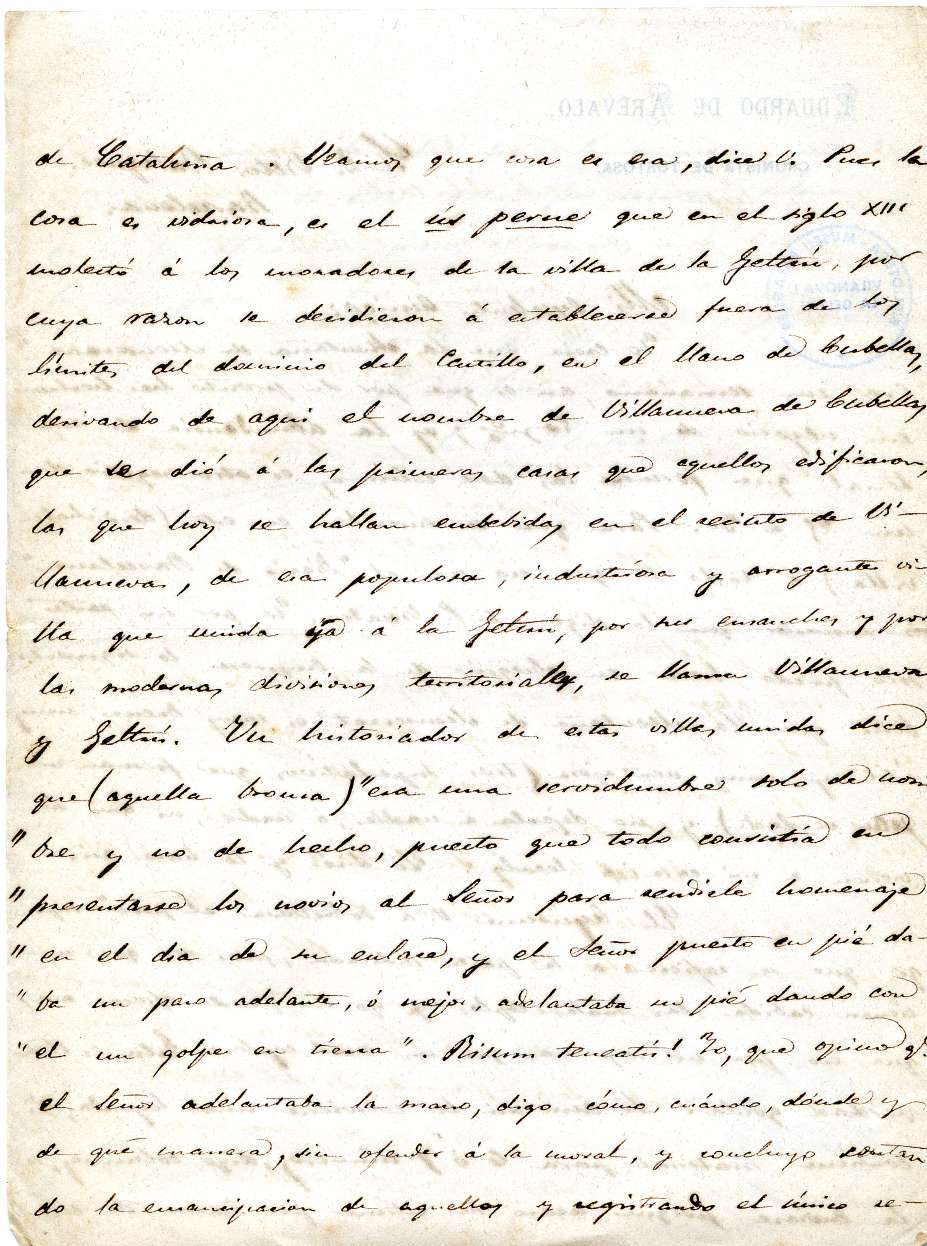 EDUARDO DE ARÉVALO.
CRONISTA DE TORTOSA.
de Cataluña. Veamos que cosa es esa, dice V. Pues la
cosa es vidriosa, es el us perne que en el siglo XIII
molestó á los moradores de la villa de la Geltrú, por
cuya razon se decidieron á establecerse fuera de los
límites del dominio del Castillo, en el llano de Cubellas,
derivando de aqui el nombre de Villanueva de Cubellas
que se dió á las primeras casas que aquellos edificaron,
las que hoy se hallan embebidas en el recinto de Vi-
llanueva, de esa populosa, industriosa y arrogante vi-
lla que unida ya á la Geltrú, por sus ensanches y por
las modernas divisiones territoriales, se llama Villanueva
y Geltrú. Un historiador de estas villas unidas dice
que (aquella broma) "era una servidumbre solo de nom
"bre y no de hecho, puesto que todo consistía en
"presentarse los novios al Señor para rendirle homenaje
"en el dia de su enlace, y el Señor puesto en pié da-
"ba un paso adelante, ó mejor, adelantaba un pié dando con
"el un golpe en tierra". Risum teneatis! Yo, que opino q.
el Señor adelantaba la mano, digo cómo, cuándo, dónde y
de qué manera, sin ofender á la moral, y concluyo contan
do la emancipacion de aquellos y registrando el único re-